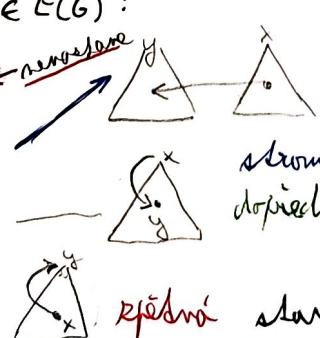 ∈ E(G) :
nenastane
y x
x strom
y dopřed
y
x zpětná stav